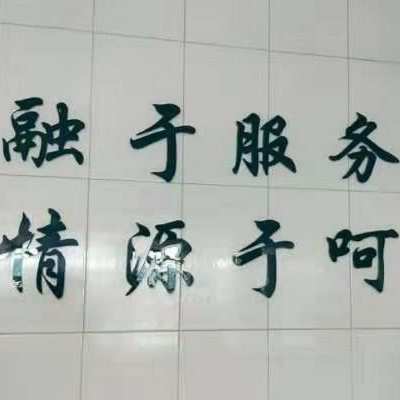 融于服务
精源于呵